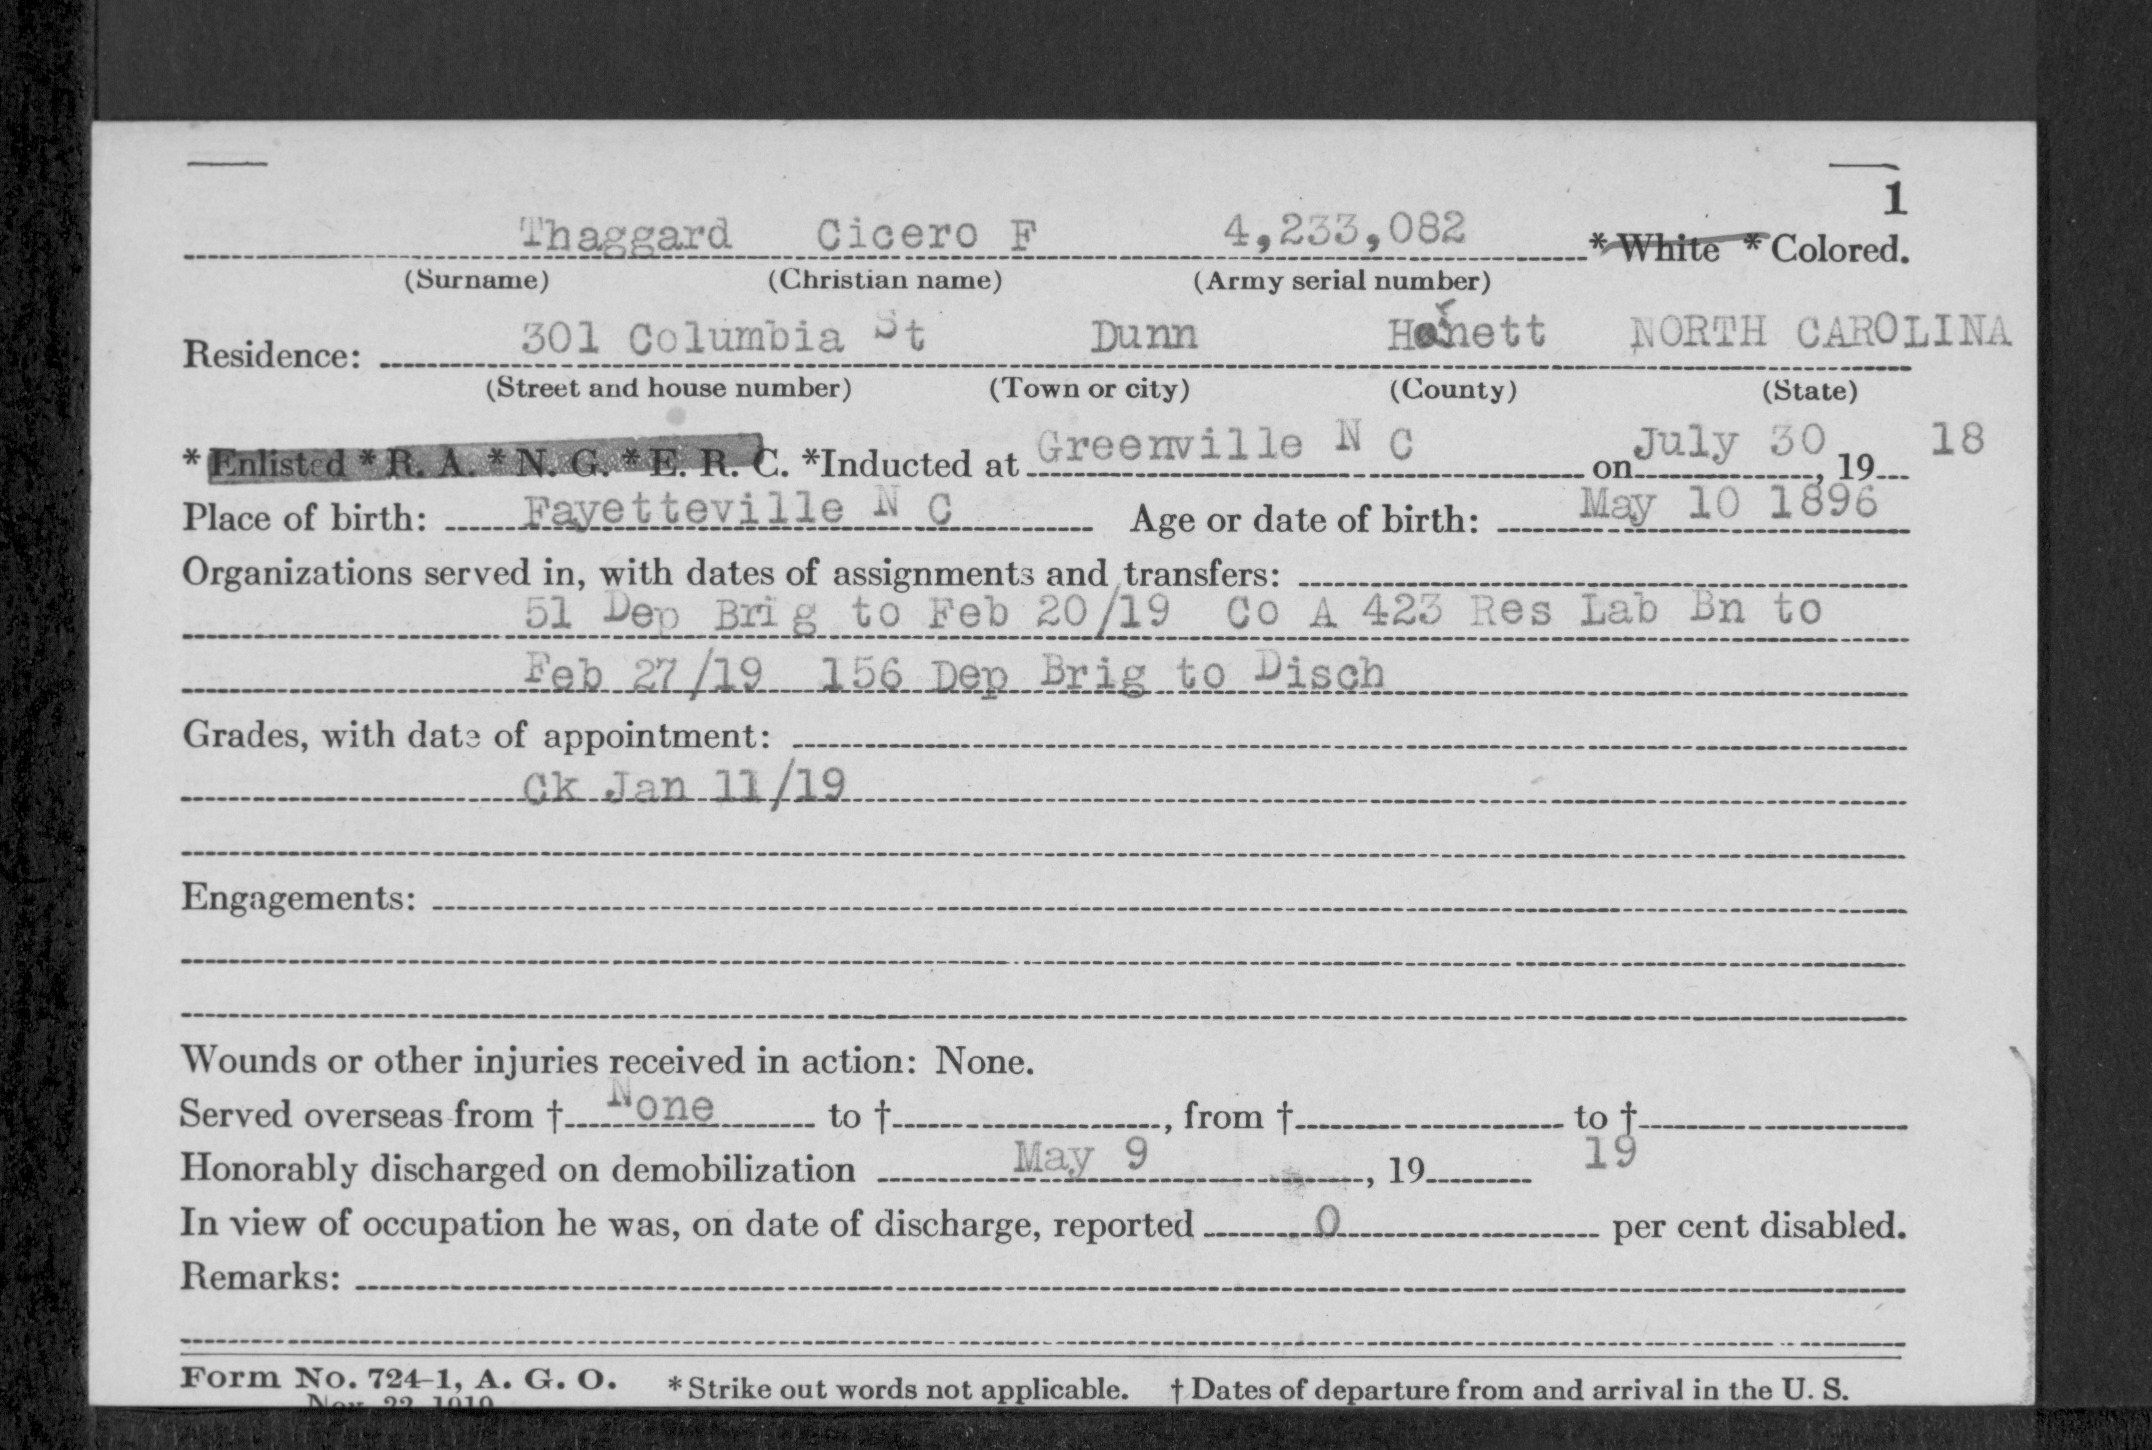 1
Thaggard Cicero F 4,233,082 *White *Colored.
(Surname) (Christian name) (Army serial number)
Residence: 301 Columbia St Dunn NORTH CAROLINA
(Street and house number) (Town or city) (County) (State)
*Enlisted *R. A. *N. G. *E. R. C. *Inducted at Greenville N C on July 30, 19 18
Place of birth: Fayetteville N C Age or date of birth: May 10 1896
Organizations served in, with dates of assignments and transfers:
51 Dep Brig to Feb 20/19 Co A 423 Res Lab Bn to
Feb 27/19 156 Dep Brig to Disch
Grades, with date of appointment:
Ck Jan 11/19
Engagements:
Wounds or other injuries received in action: None.
Served overseas from † None to †, from † to †
Honorably discharged on demobilization May 9, 19 19
In view of occupation he was, on date of discharge, reported 0 per cent disabled.
Remarks:
Form No. 724-1, A. G. O. *Strike out words not applicable. †Dates of departure from and arrival in the U. S.
Nov. 22 1919